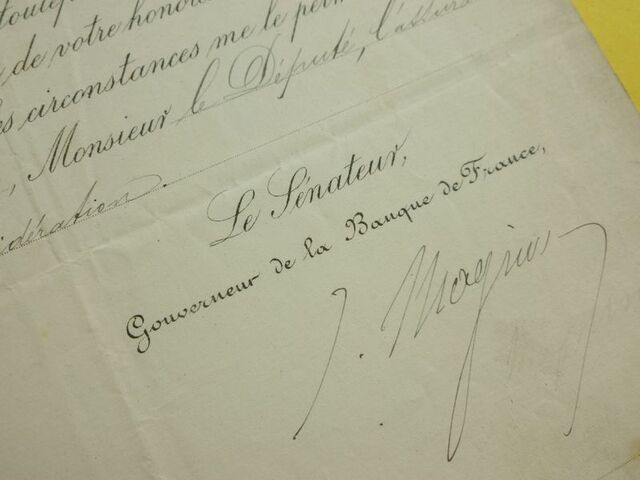 toutef
de votre honor
es circonstances me le perm
, Monsieur le Député, l'assura
idération.
Le Sénateur,
Gouverneur de la Banque de France,
J. Magnin